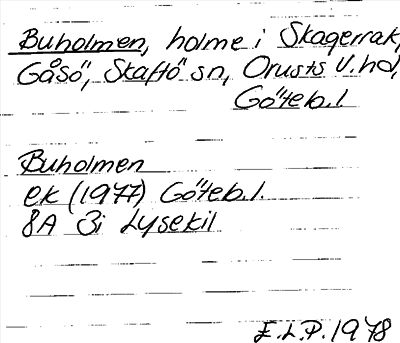 Buholmen, holme i Skagerrak,
Gåsö, Skaftö sn, Orusts V. hd,
Göteb. l
Buholmen
ek (1977) Göteb. l.
8A 3i Lysekil
E.L.P. 1978